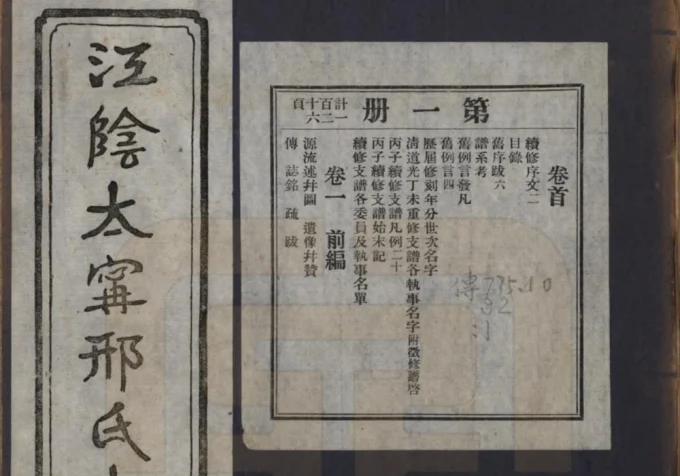 江陰太甯邢氏
第一册
計一百二十六頁
卷首
續修序文二
目錄
舊序跋六
譜系考
舊例言發凡
舊例言四
歷屆修刻年分世次名字
清道光丁未重修支譜各執事名字附徵修譜啓
丙子續修支譜凡例二十
丙子續修支譜始末記
續修支譜各委員及執事名單
卷一 前編
源流述幷圖 遺像幷贊
傳 誌銘 疏 跋
傳 775.10
32
:1